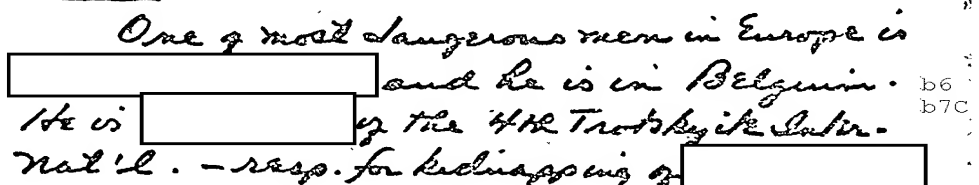 One of most dangerous men in Europe is
and he is in Belgium. b6
He is of the 4th Trotskyite Inter- b7C
nat'l. - resp. for kidnapping of